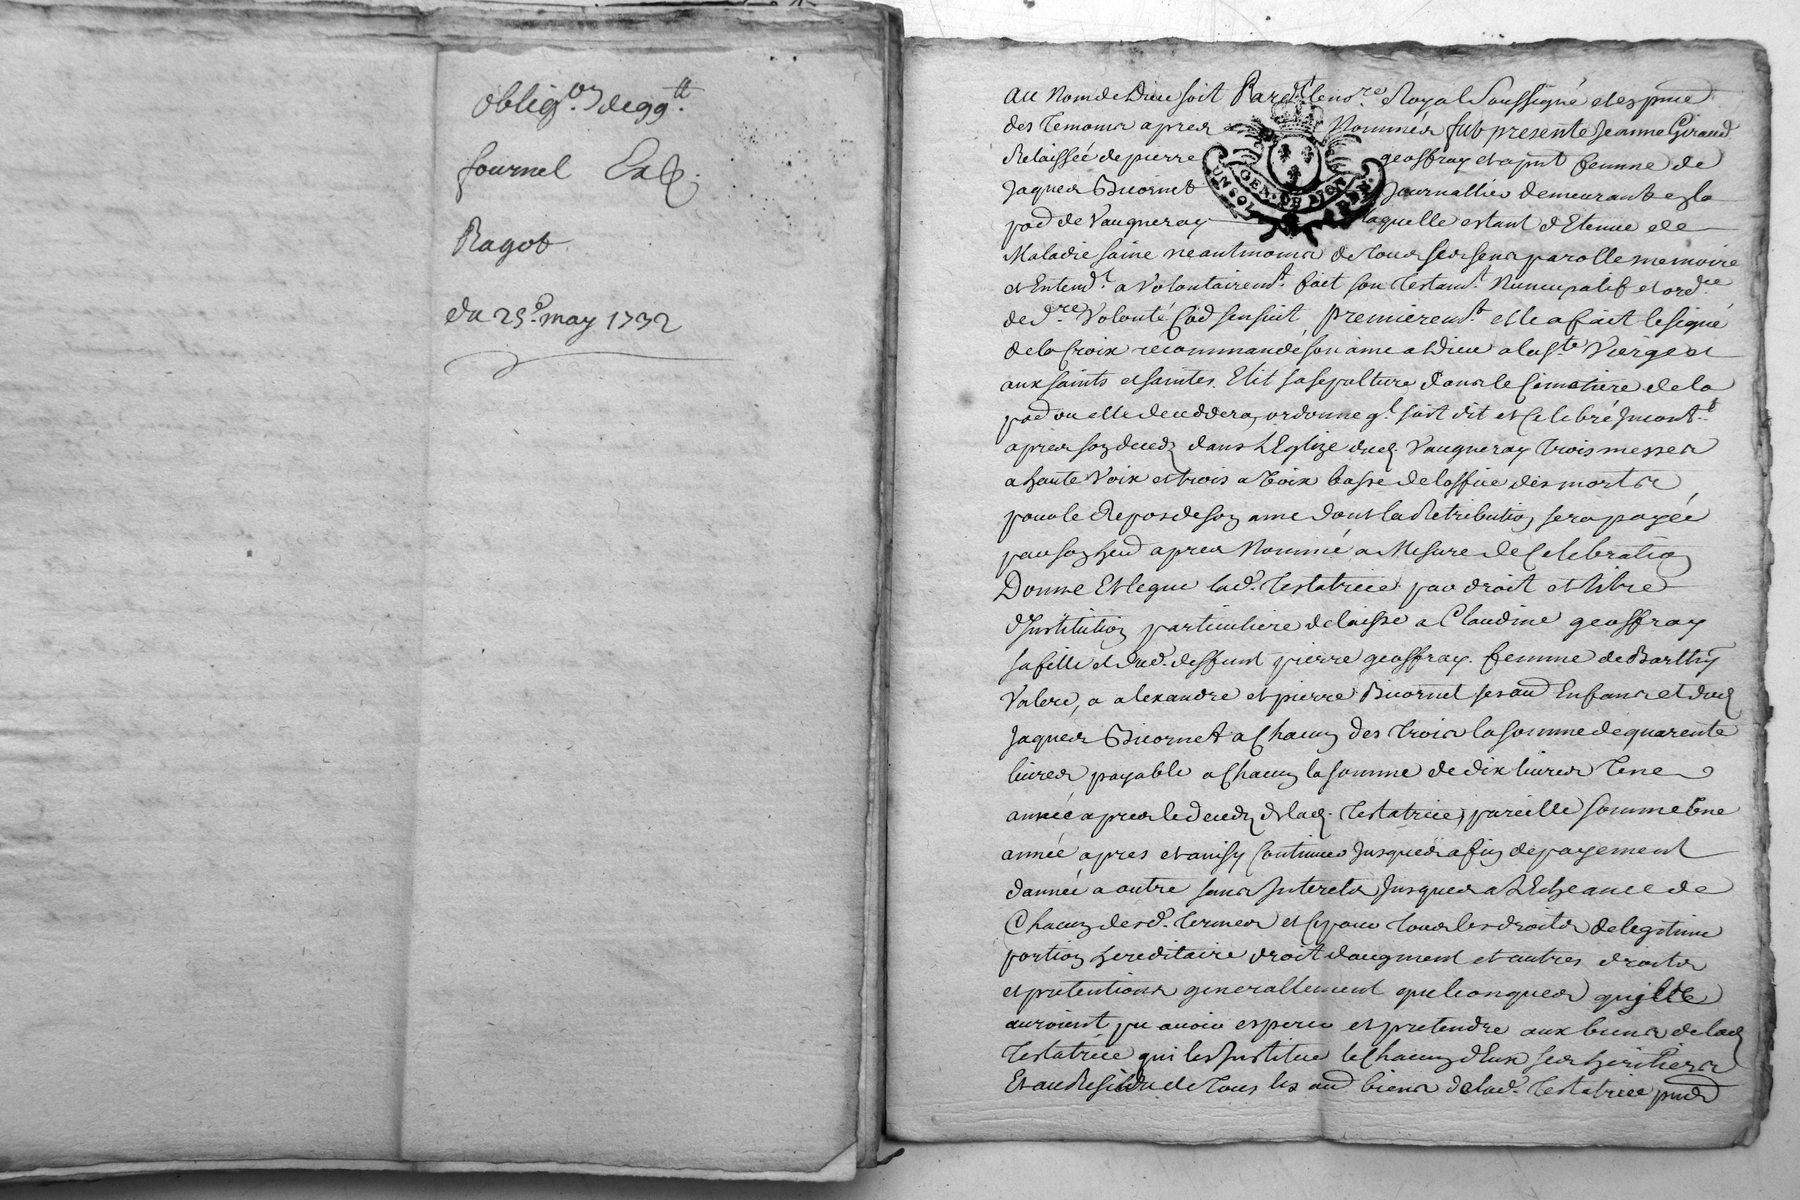 obligon de 99tt
fournel
Ragot
du 25e may 1732
Au Nom de Dieu soit Pardt le nore Royal Soussigné et es pnce
des Temoins apres Nommés fut presente Jeanne Giraud
Relaissée de pierre geoffray et a pnt femme de
Jaques Bicornet Journallier demeurant en la
pad de Vaugneray laquelle estant d'Etenue de
Maladie saine neantmoins de Tous ses sens parolle memoire
et Entendt a Volontairemt fait son Testamt Nuncupatif et ordce
de dre Volonté Co͞e sensuit, premieremt elle a fait le signe
de la Croix recommandé son ame a Dieu a la ste Vierge et
aux saints et saintes, Elit sa sepulture dans le Cimetiere de la
pad ou elle deceddera, ordonne ql soit dit et Celebré Jncontt
apres son deced dans L'Eglize dud Vaugneray trois messes
a haute Voix et trois a Voix basse de l'office des morts
pour le Repos de son ame dont la Retribution sera payée
par son herd apres Nommé a Mesure de Celebration
Donne Et legue lad. Testatrice par droit et titre
d'Institution particuliere delaisse a Claudine geoffray
sa fille et dud. deffunt pierre geoffray. femme de Barthy
Valere, a alexandre et pierre Bicornet ses aud Enfans et dud
Jaques Bicornet a Chacun des Trois la somme de quarente
livres payable a Chacun la somme de dix livres Une
année apres le deced de lad. Testatrice, pareille somme Une
année apres et ainsy Continuer Jusques a fin de payement
dannée a autre sans Interets Jusques a L'Echeance de
Chacun desd. Termes et Ce pour Tous les droits de legitime
portion hereditaire droit d'augment et autres droits
et pretentions generallement quelconques quils
auroient pu avoir esperer et pretendre aux biens de lad
Testatrice qui les Institue le Chacun d'Eux ses heritiers
Et au Residu de Tous les aud biens de lad. Testatrice